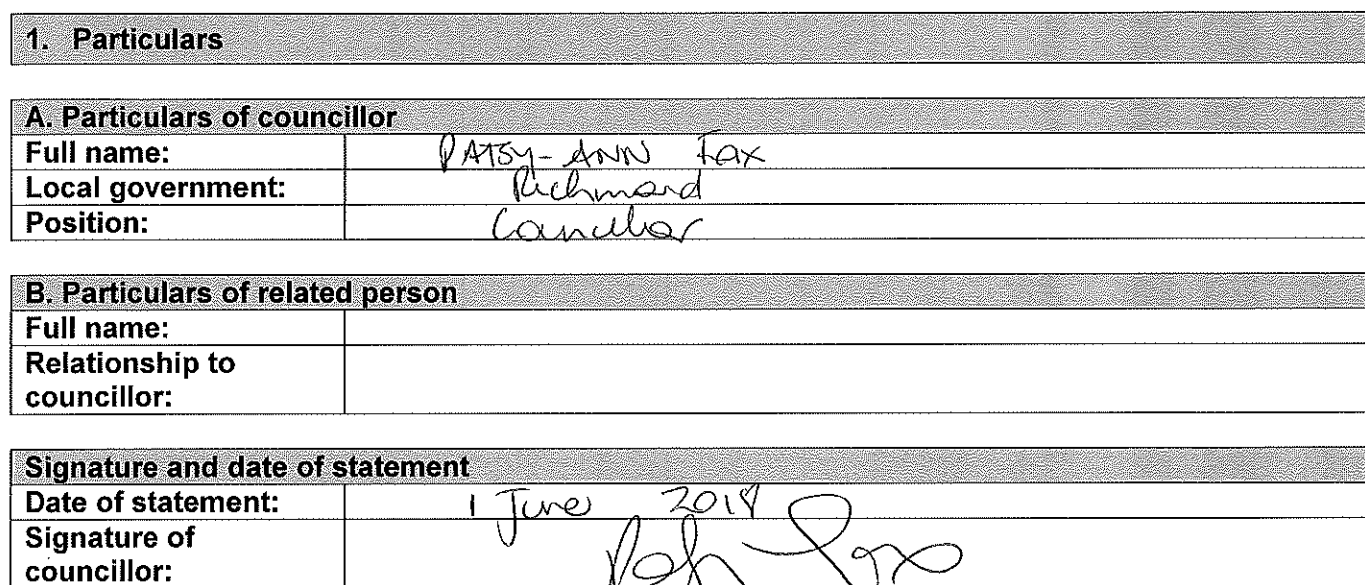 1. Particulars
A. Particulars of councillor
Full name: PATSY-ANN Fox
Local government: Richmond
Position: Councillor
B. Particulars of related person
Full name:
Relationship to
councillor:
Signature and date of statement
Date of statement: 1 June 2018
Signature of
councillor: